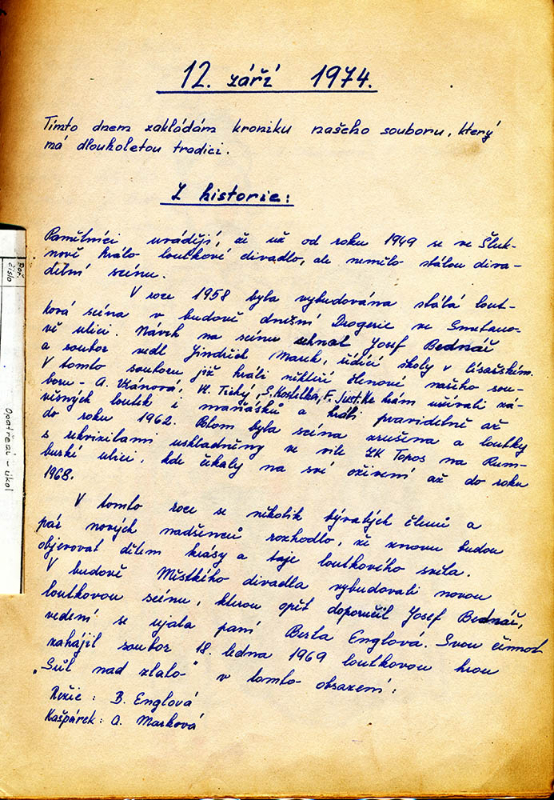 12. září 1974.
Tímto dnem zakládám kroniku našeho souboru, který
má dlouholetou tradici.
Z historie:
Pamětníci uvádějí, že už od roku 1949 se ve Šluk-
nově hrálo loutkové divadlo, ale nemělo stálou diva-
delní scénu.
V roce 1958 byla vybudována stálá lout-
ková scéna v budově dnešní Drogerie ve Smetano-
vě ulici. Návrh na scénu sehnal Josef Bednář
a soubor vedl Jindřich Marek, řídící školy v Císařském.
V tomto souboru již hráli někteří členové našeho sou-
boru - A. Vránová, H. Tichý, S. Kostilka, F.
užívali zá-
věsných loutek i maňásků a hráli pravidelně až
do roku 1962. Potom byla scéna zrušena a loutky
s rekvizitami uskladněny ve vile ZK Topos na Rum-
burské ulici, kde čekaly na své oživení až do roku
1968.
V tomto roce se několik bývalých členů a
pár nových nadšenců rozhodlo, že znovu budou
objevovat dětem krásy a taje loutkového světa.
V budově Městského divadla vybudovali novou
loutkovou scénu, kterou opět doporučil Josef Bednář,
vedení se ujala paní Berta Englová. Svou činnost
zahájil soubor 18. ledna 1969 loutkovou hrou
„Sůl nad zlato" v tomto obsazení:
Režie: B. Englová
Kašpárek: A. Marková
Poř.
číslo
Opatření - úkol